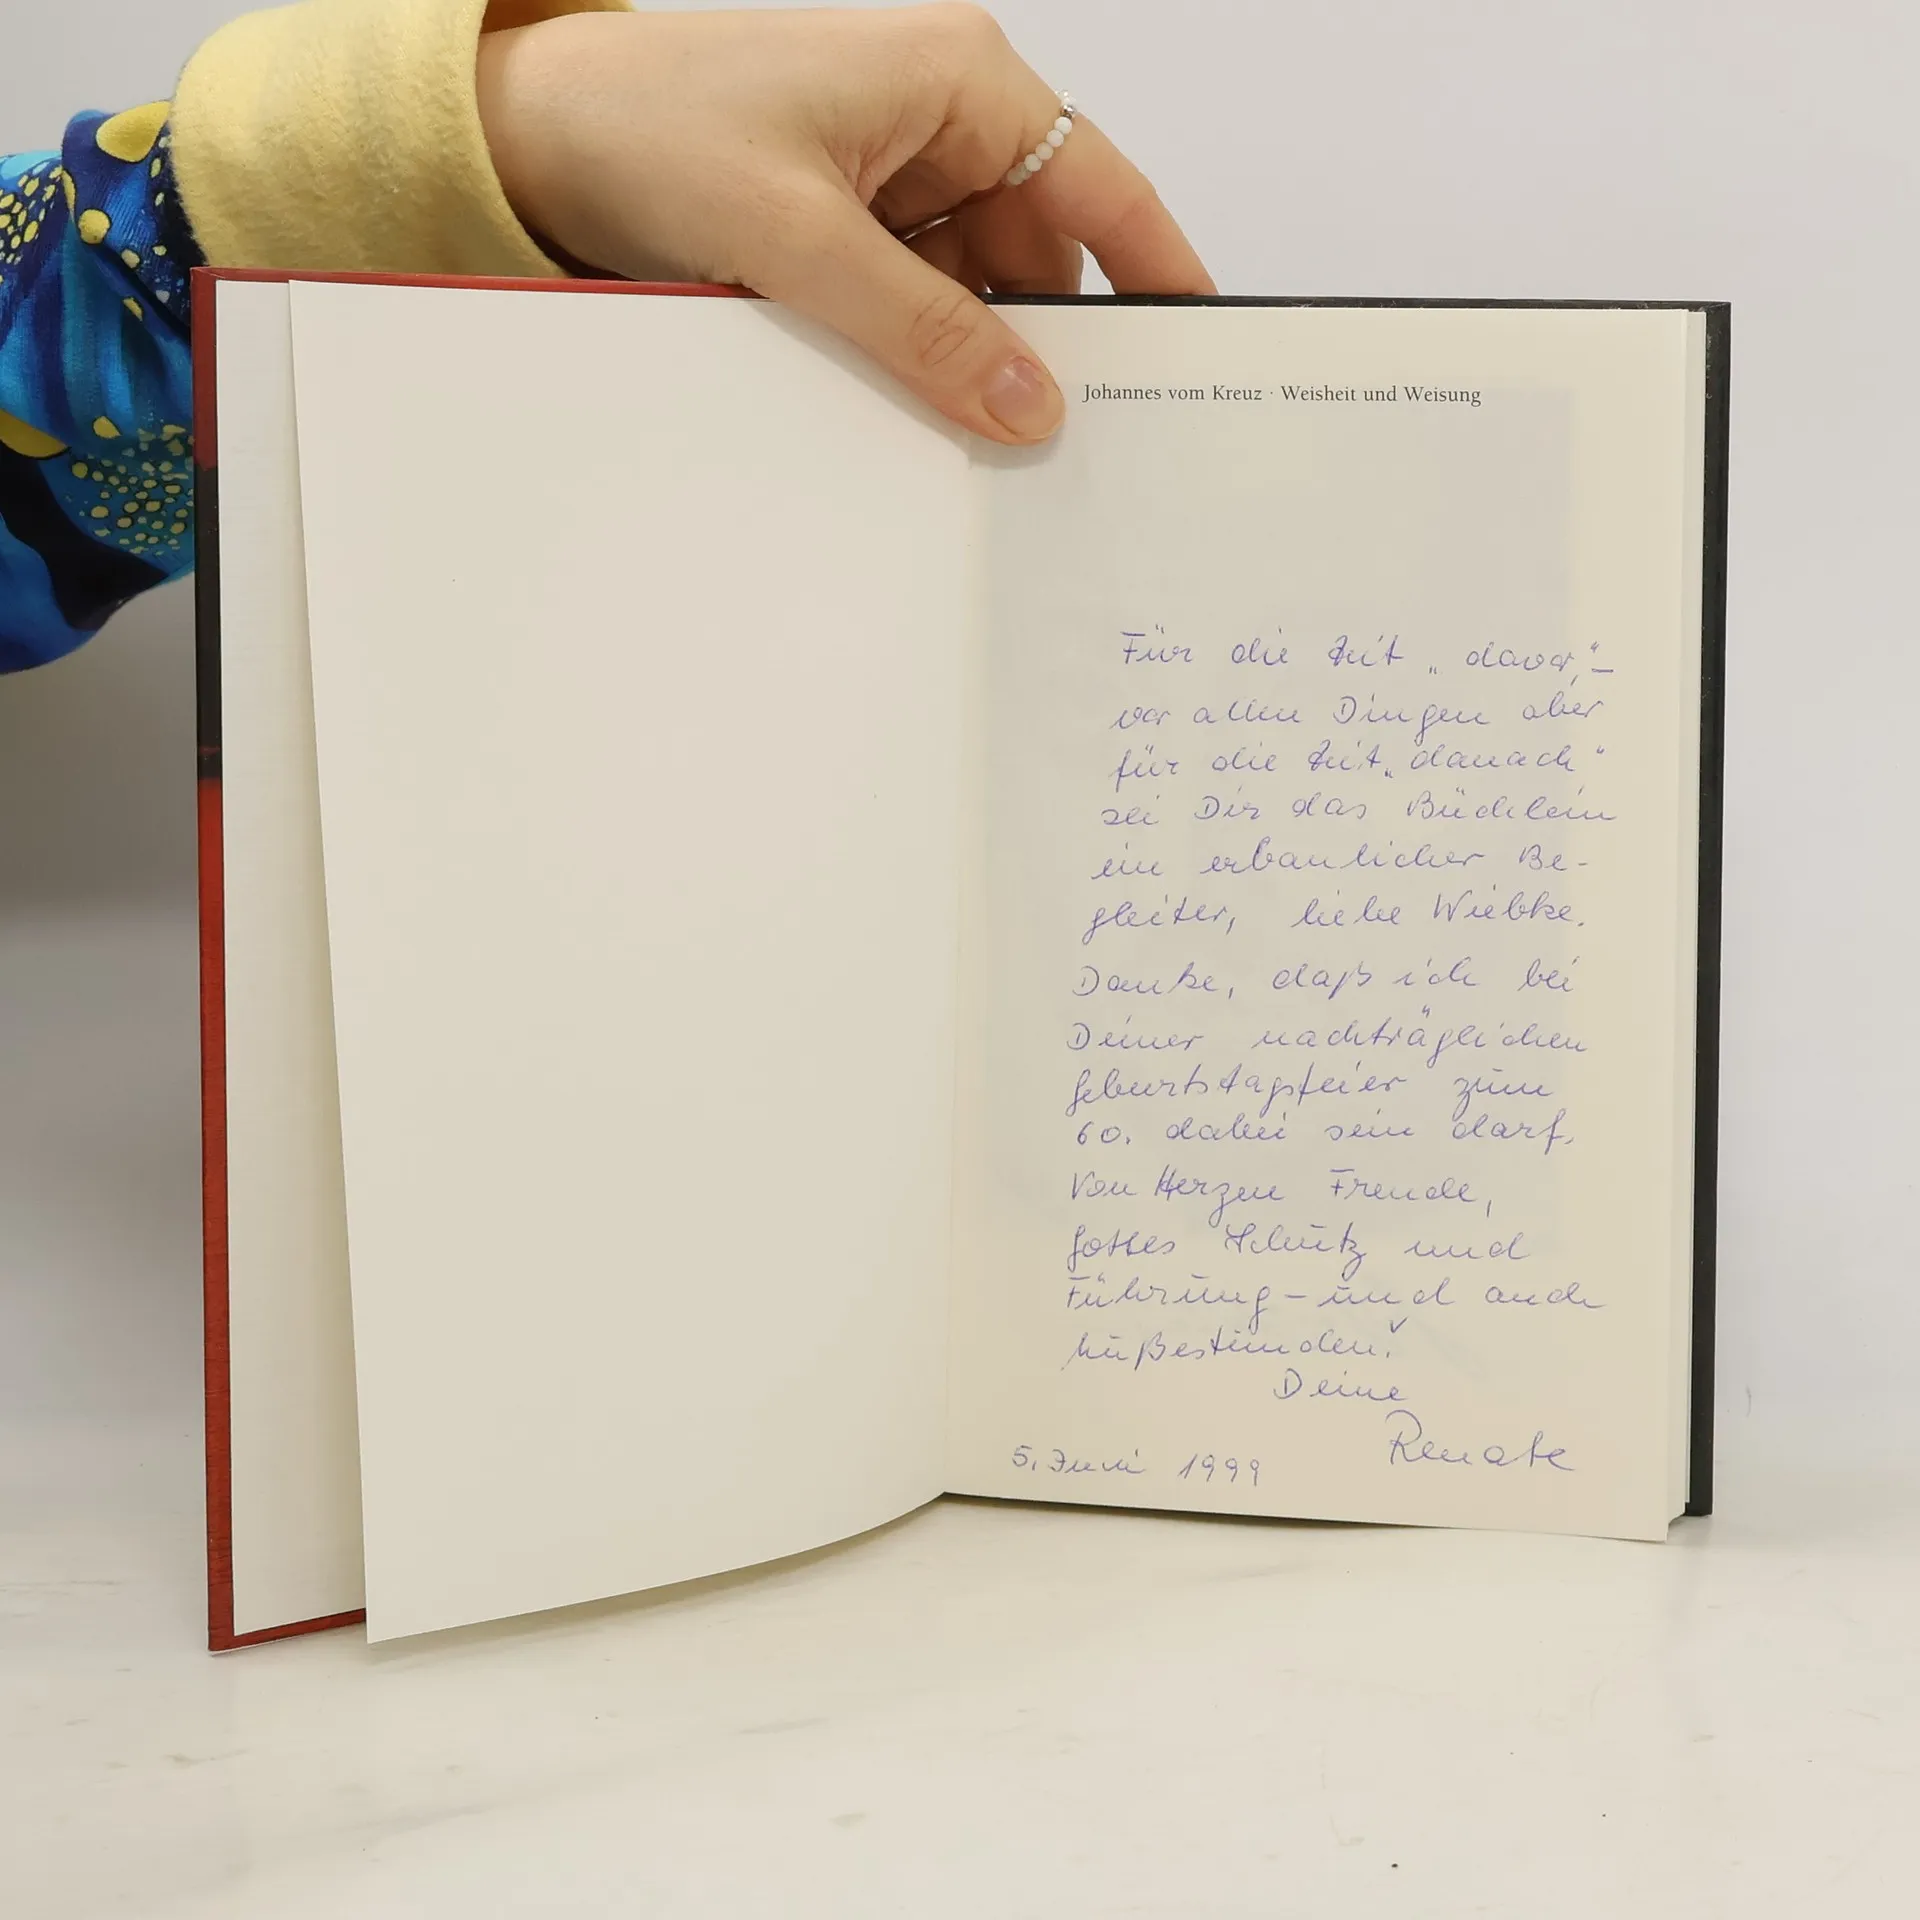 Johannes vom Kreuz · Weisheit und Weisung
Für die Zeit „davor,“ –
vor allen Dingen aber
für die Zeit „danach“
sei Dir das Büchlein
ein erbaulicher Be-
gleiter, liebe Wiebke.
Danke, daß ich bei
Deiner nachträglichen
Geburtstagsfeier zum
60. dabei sein darf.
Von Herzen Freude,
Gottes Schutz und
Führung – und auch
Mußestunden!
Deine
Renate
5. Juni 1999